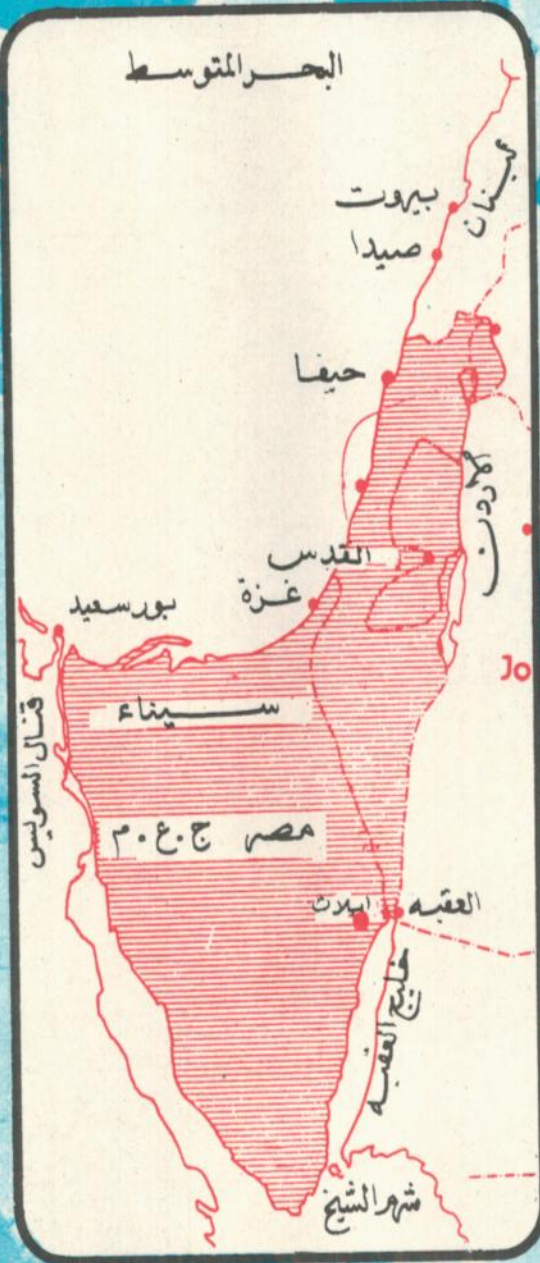 البحر المتوسط
لبنان
بيروت
صيدا
حيفا
الأردن
القدس
غزة
بور سعيد
قنال السويس
سيناء
مصر ج.ع.م
ايلات
العقبه
خليج العقبه
شرم الشيخ
Jo